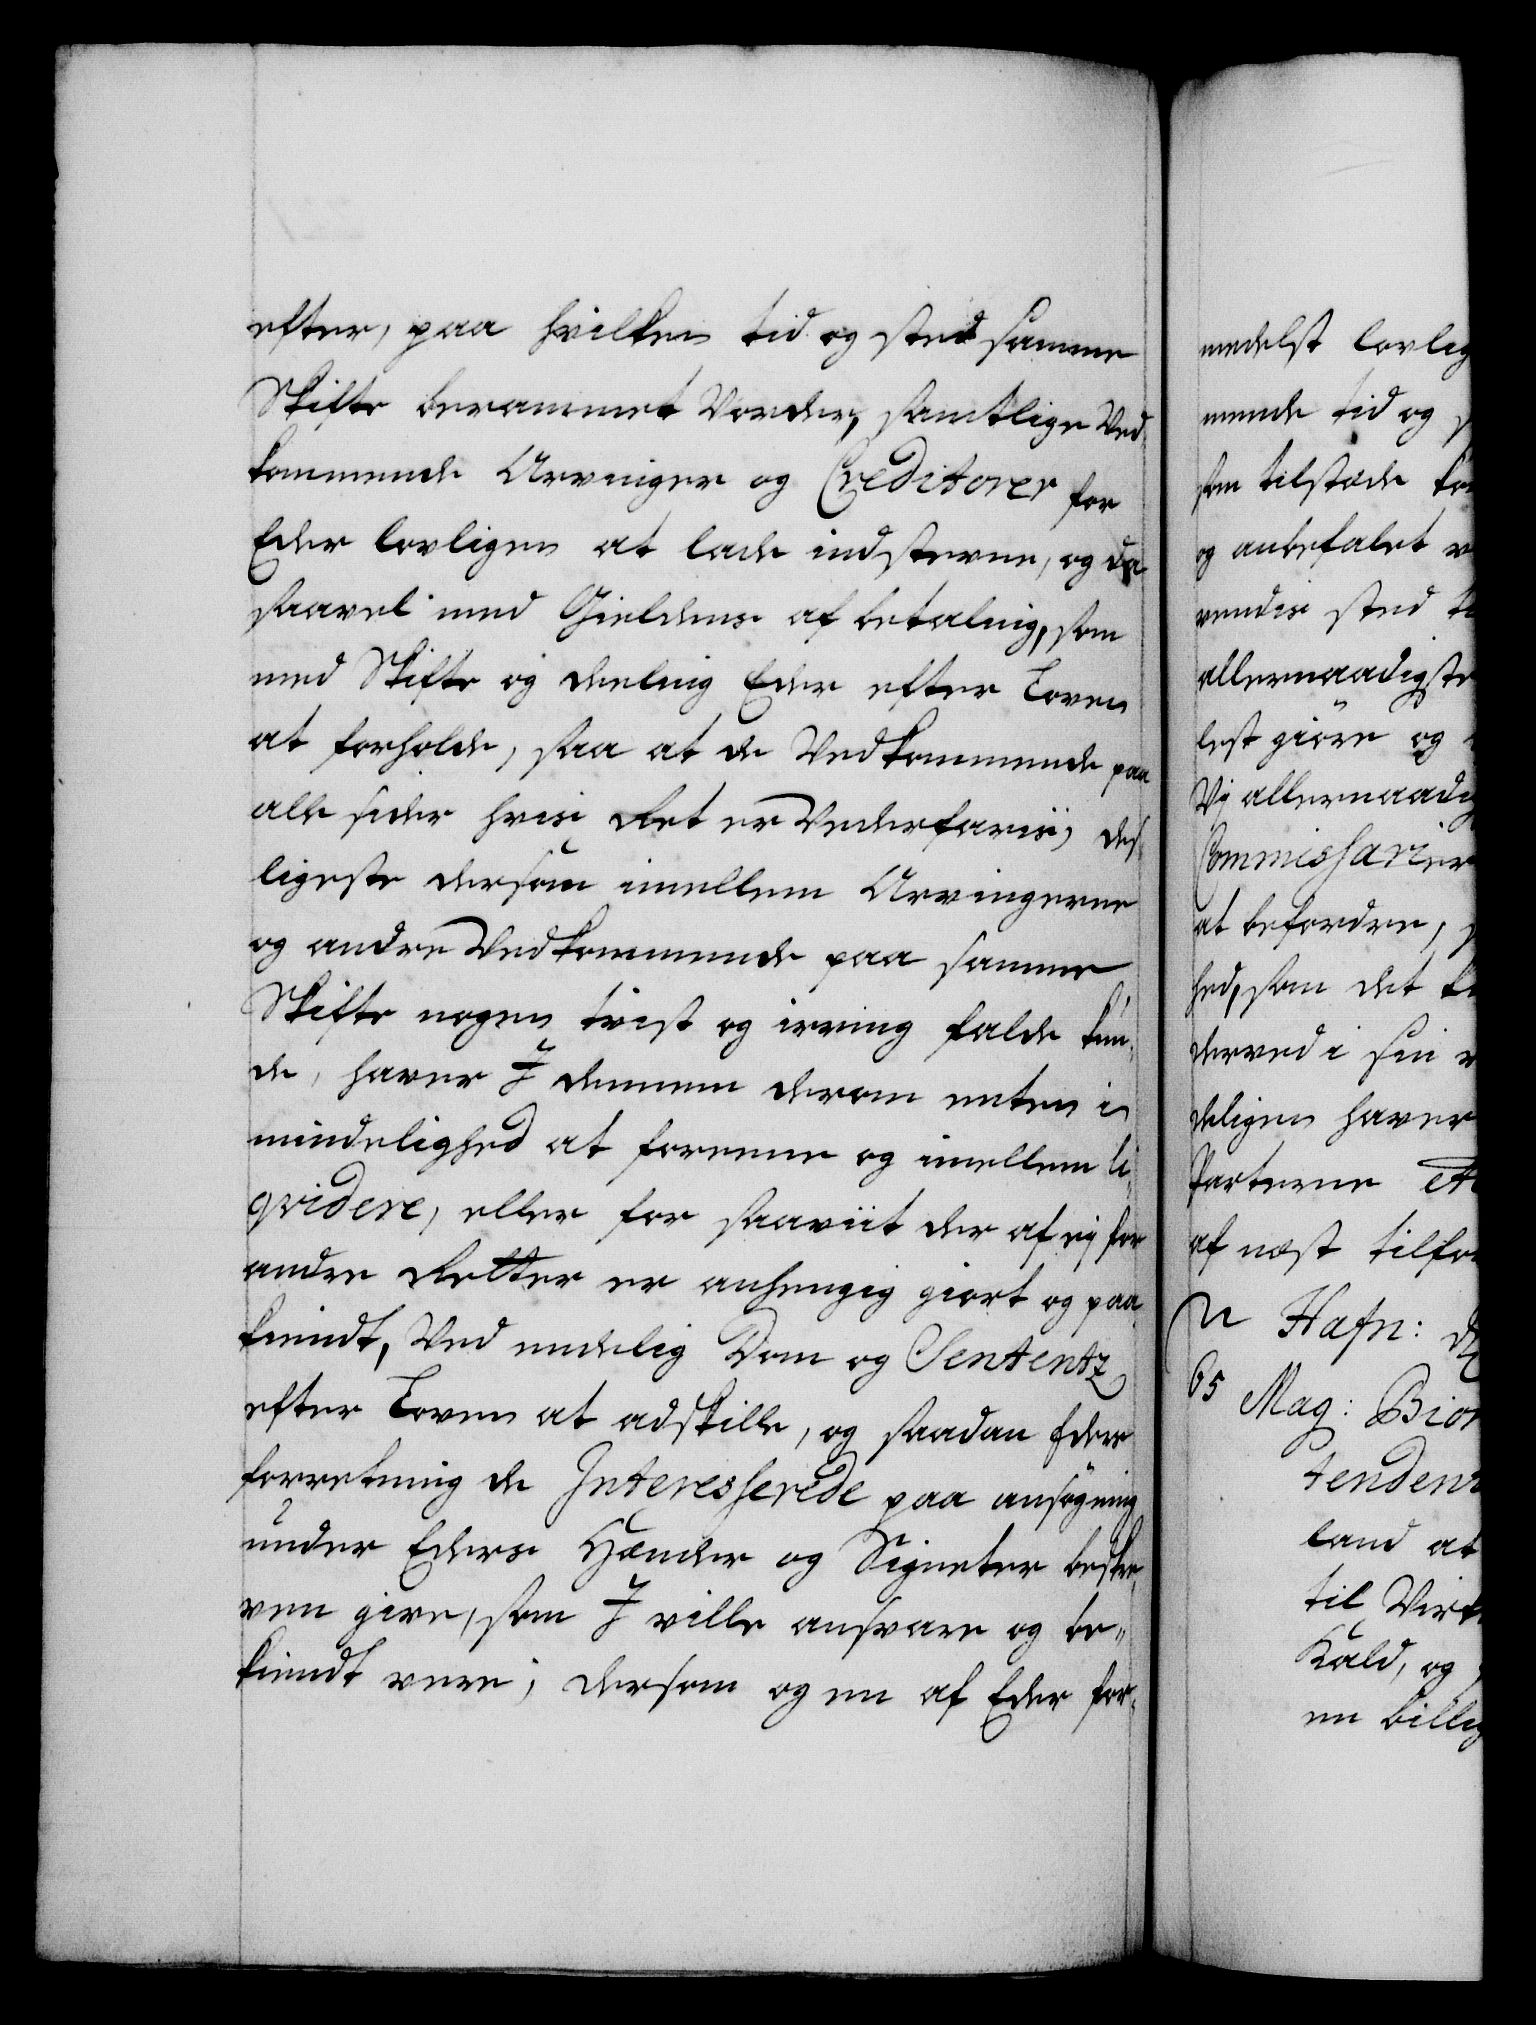 efter, paa hvilken tid og sted samme
Skifte berammet Vorder, samtlige Ved-
kommende Arvinger og Creditorer for
Eder lovligen at lade indstevne, og da
saavel med Gieldens af betaling, som
med Skifte og deeling Eder efter Loven
at forholde, saa at de Vedkommende paa
alle sider hvis Ret er Vederfaris, des-
ligeste dersom imellem Arvingerne
og andre Vedkommende paa samme
Skifte nogen tvist og irring falde kun-
de, haver I dennem derom enten i
mindelighed at foreene og imellem li-
qvidere, eller for saaviit der af ej for
andre Retter er anhengig giort og paa-
kiendt, Ved endelig Dom og Sententz
efter Loven at adskille, og saadan Eders
forretning de Interesserede paa ansøgning
under Eders Hænder og Signeter beskre-
ven give, som I ville ansvare og be-
kiendt vere; dersom og en af Eder for-
medelst lovlig
mende tid og
som tilstæde
og anbefalet
vendis sted
allernaadigste
lest giøre og
Vj allernaadig
Commissarier
at befordre,
hed, som det
derved i sin
deligen haver
Parterne
af næst tilfor
Hafn:
65 Mag: Bior
tendent
land at
til Virk
Kald, og
en billig